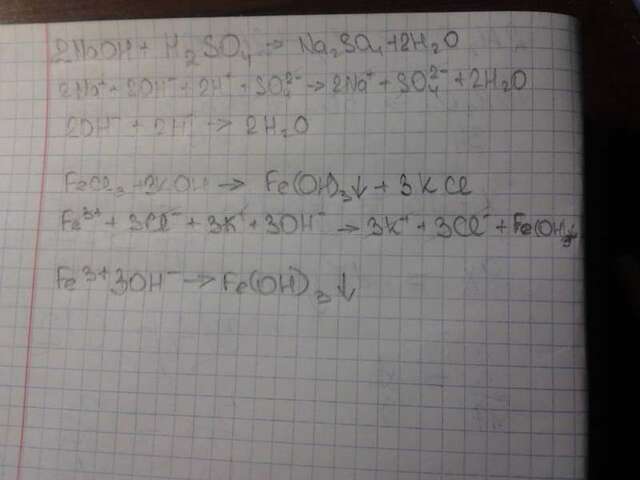 2NaOH + H₂SO₄ → Na₂SO₄ + 2H₂O
2Na⁺ + 2OH⁻ + 2H⁺ + SO₄²⁻ → 2Na⁺ + SO₄²⁻ + 2H₂O
2OH⁻ + 2H⁺ → 2H₂O
FeCl₃ + 3KOH → Fe(OH)₃↓ + 3KCl
Fe³⁺ + 3Cl⁻ + 3K⁺ + 3OH⁻ → 3K⁺ + 3Cl⁻ + Fe(OH)₃↓
Fe³⁺ 3OH⁻ → Fe(OH)₃↓